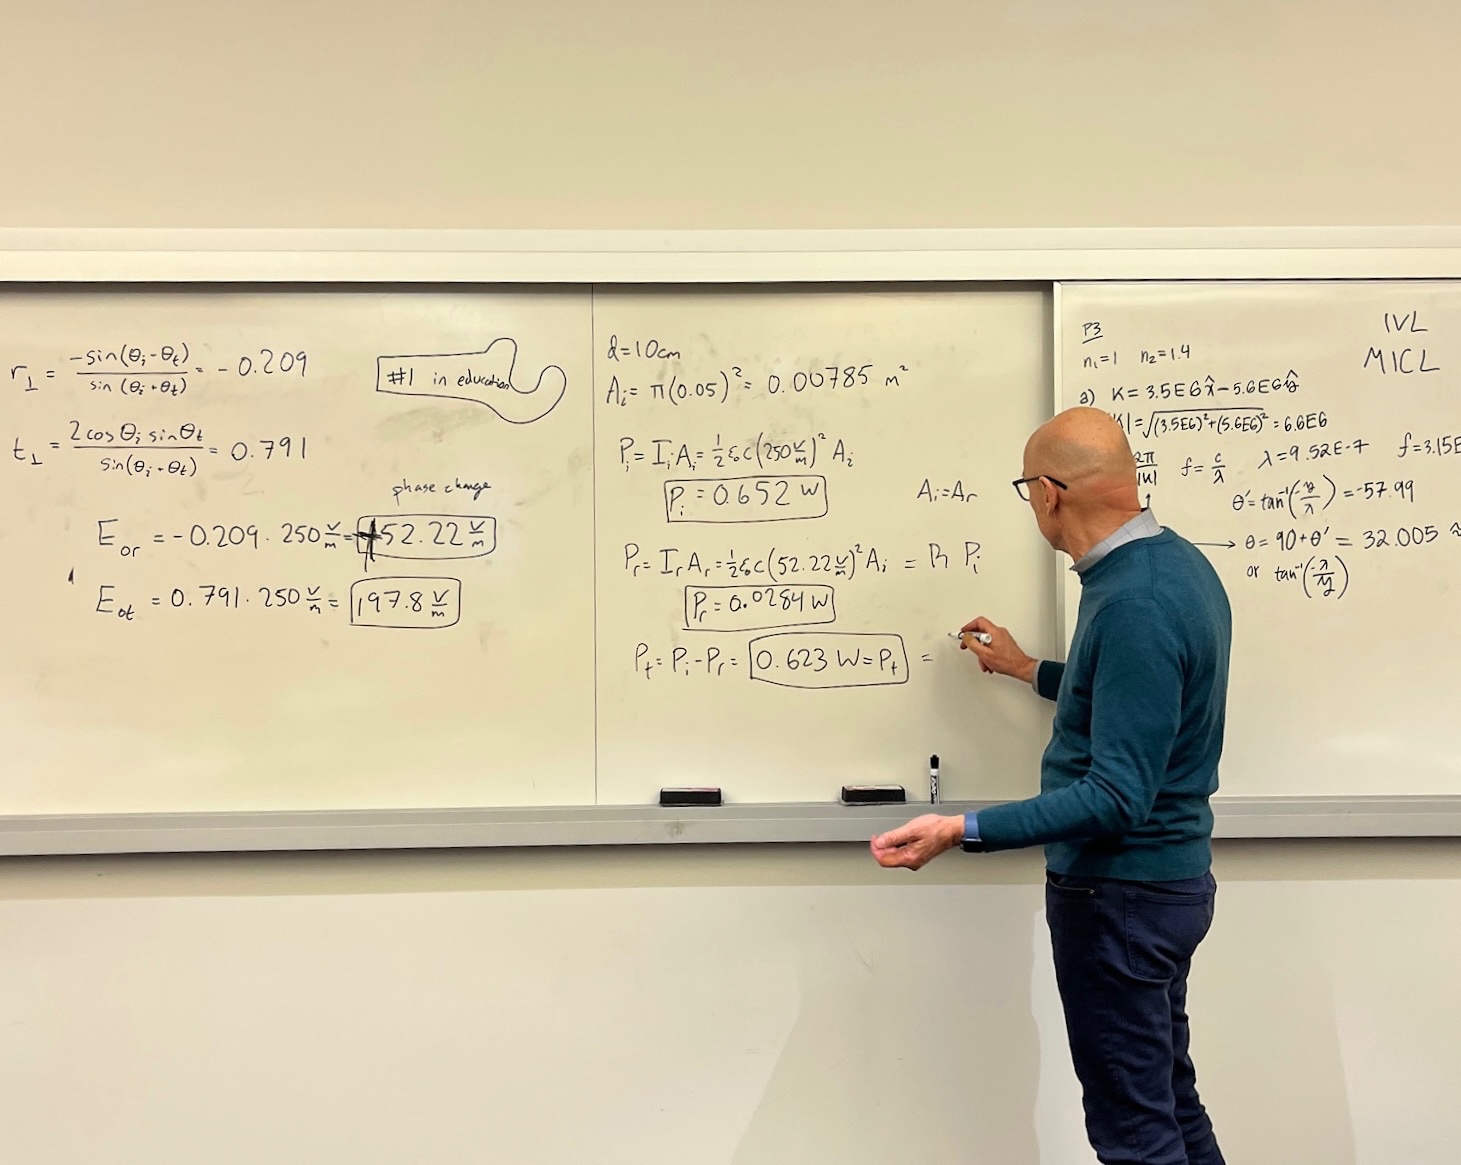 r⊥ = -sin(θi-θt) / sin(θi+θt) = -0.209
t⊥ = 2cosθi sinθt / sin(θi+θt) = 0.791
#1 in education
phase change
Eor = -0.209 · 250 V/m = 52.22 V/m
Eot = 0.791 · 250 V/m = 197.8 V/m
d=10cm
Ai = π(0.05)² = 0.00785 m²
Pi = IiAi = ½ε₀c(250 V/m)² Ai
Pi = 0.652 W
Ai=Ar
Pr = IrAr = ½ε₀c(52.22 V/m)² Ai = R Pi
Pr = 0.0284 W
Pt = Pi-Pr = 0.623 W = Pt =
P3
n₁=1 n₂=1.4
IVL
MICL
a) K = 3.5E6x̂ - 5.6E6ŷ
k| = √(3.5E6)²+(5.6E6)² = 6.6E6
2π/|k| f = c/λ λ=9.52E-7 f=3.15E
θ' = tan⁻¹(-y/x) = -57.99
→ θ = 90+θ' = 32.005 ≈
or tan⁻¹(-x/y)